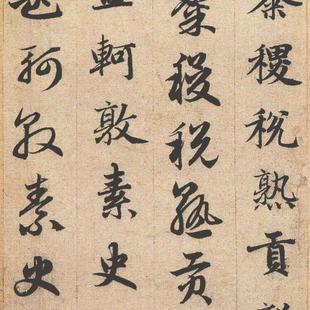 黍稷稅熟貢
黍稷稅熟貢
軻敦素史
孟軻敦素史